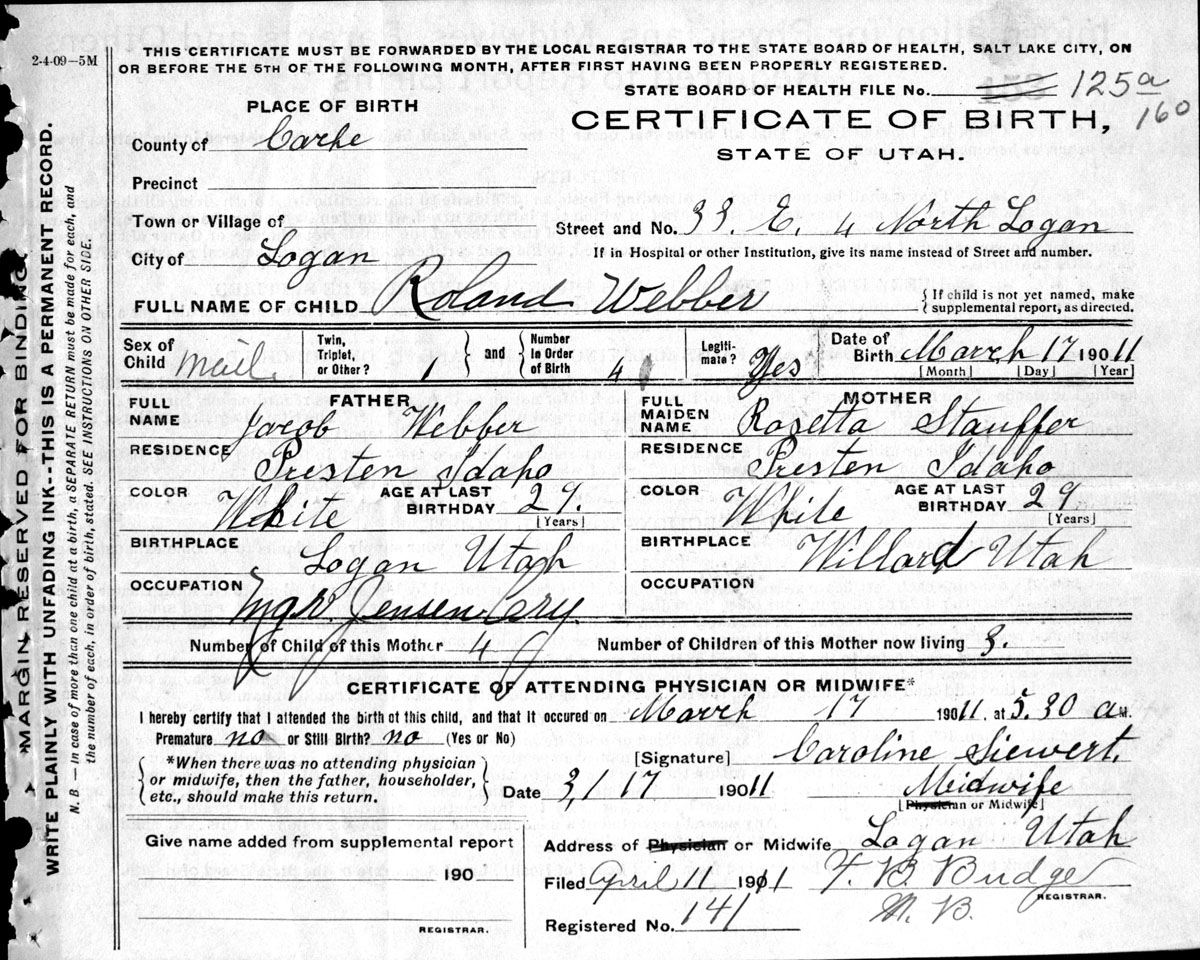 2-4-09-5M
THIS CERTIFICATE MUST BE FORWARDED BY THE LOCAL REGISTRAR TO THE STATE BOARD OF HEALTH, SALT LAKE CITY, ON
OR BEFORE THE 5TH OF THE FOLLOWING MONTH, AFTER FIRST HAVING BEEN PROPERLY REGISTERED.
STATE BOARD OF HEALTH FILE No. 125a
160
PLACE OF BIRTH
CERTIFICATE OF BIRTH,
STATE OF UTAH.
County of Cache
Precinct
Town or Village of
Street and No. 33. E. 4 North Logan
City of Logan
If in Hospital or other Institution, give its name instead of Street and number.
FULL NAME OF CHILD Roland Webber
{If child is not yet named, make
supplemental report, as directed.
Sex of Child Mail. Twin, Triplet, or Other? 1 } and { Number in Order of Birth 4 Legiti-mate? Yes Date of Birth March 17 19011
[Month] [Day] [Year]
FATHER
FULL NAME Jacob Webber
RESIDENCE Presten Idaho
COLOR White AGE AT LAST BIRTHDAY 29.
[Years]
BIRTHPLACE Logan Utah
OCCUPATION Mgr. Jensen Cry.
MOTHER
FULL MAIDEN NAME Rosetta Stauffer
RESIDENCE Presten Idaho
COLOR White AGE AT LAST BIRTHDAY 29.
[Years]
BIRTHPLACE Willard Utah
OCCUPATION
Number of Child of this Mother 4 Number of Children of this Mother now living 3.
CERTIFICATE OF ATTENDING PHYSICIAN OR MIDWIFE*
I hereby certify that I attended the birth of this child, and that it occured on March 17 19011. at 5.30 a M.
Premature no or Still Birth? no (Yes or No)
[Signature] Caroline Siewert.
{*When there was no attending physician
or midwife, then the father, householder,
etc., should make this return.}
Date 3/17 19011 Midwife
[Physician or Midwife]
Give name added from supplemental report
190
REGISTRAR.
Address of Physician or Midwife Logan Utah
Filed April 11 1911 F. B. Budge
REGISTRAR.
Registered No. 141
*MARGIN RESERVED FOR BINDING.
WRITE PLAINLY WITH UNFADING INK--THIS IS A PERMANENT RECORD.
N. B. — In case of more than one child at a birth, a SEPARATE RETURN must be made for each, and
the number of each, in order of birth, stated. SEE INSTRUCTIONS ON OTHER SIDE.